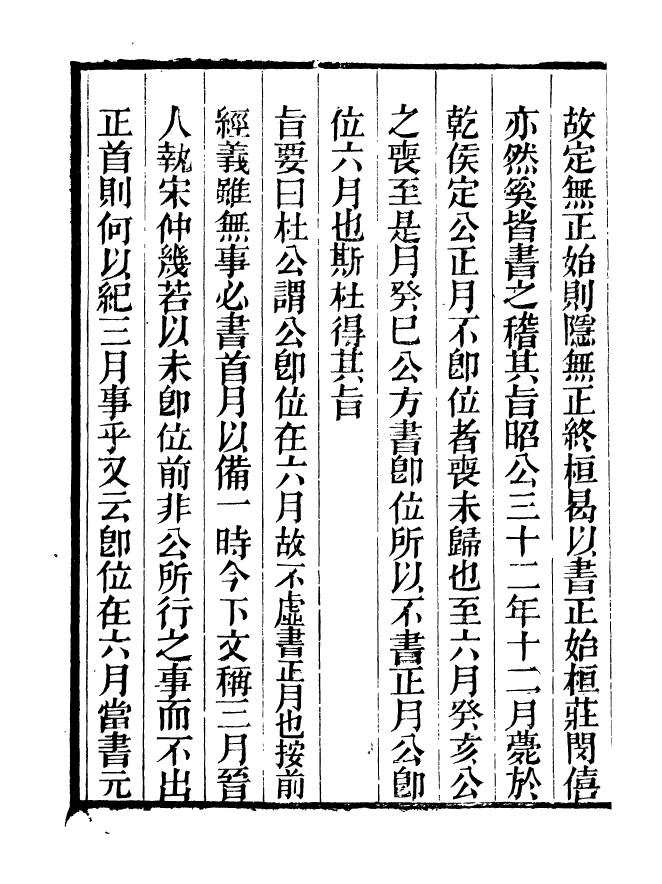 故定無正始則隱無正終桓曷以書正始桓莊閔僖
亦然奚皆書之稽其旨昭公三十二年十二月薨於
乾侯定公正月不卽位者喪未歸也至六月癸亥公
之喪至是月癸巳公方書卽位所以不書正月公卽
位六月也斯杜得其旨
旨要曰杜公謂公卽位在六月故不虛書正月也按前
經義雖無事必書首月以備一時今下文稱三月晉
人執宋仲幾若以未卽位前非公所行之事而不出
正首則何以紀三月事乎又云卽位在六月當書元